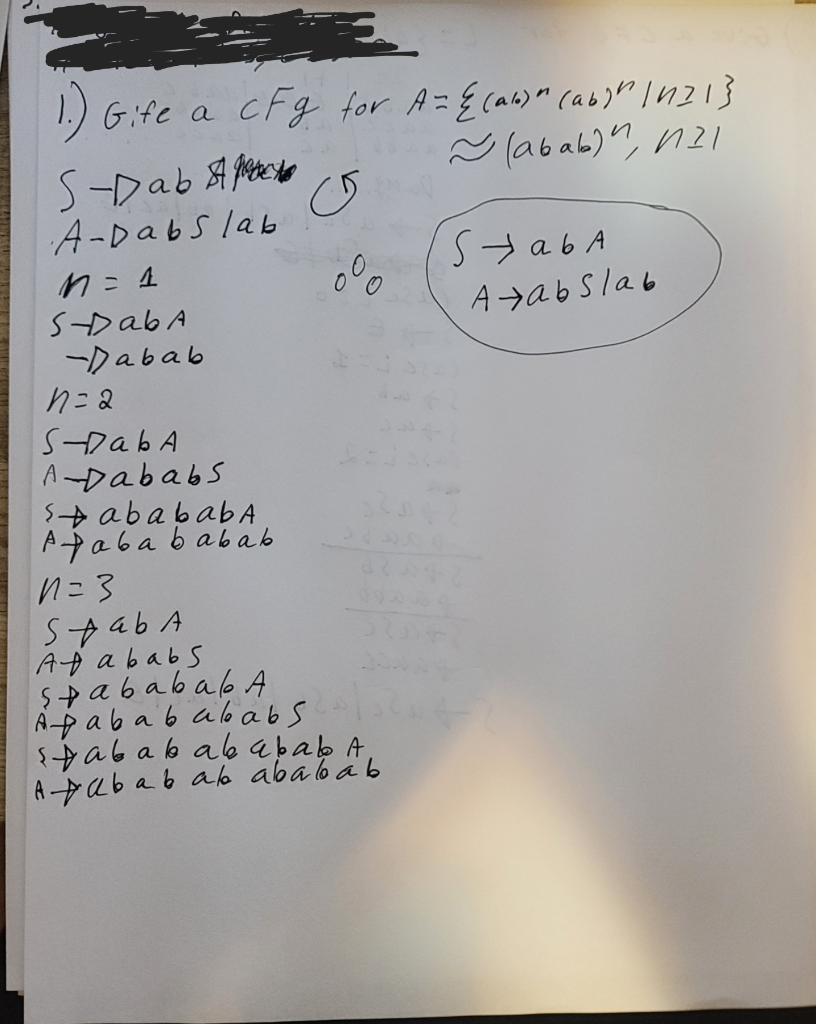 1.) Gife a cFg for A = {(ab)ⁿ (ab)ⁿ | n ≥ 1}
≈ (abab)ⁿ, n ≥ 1
S → ab
A → abS / ab
n = 1
S → abA
→ abab
n = 2
S → abA
A → ababS
S → abababA
A → abababab
n = 3
S → abA
A → ababS
S → abababA
A → abab ababS
S → abab ab abab A
A → abab ab ababab
S → abA
A → abS / ab